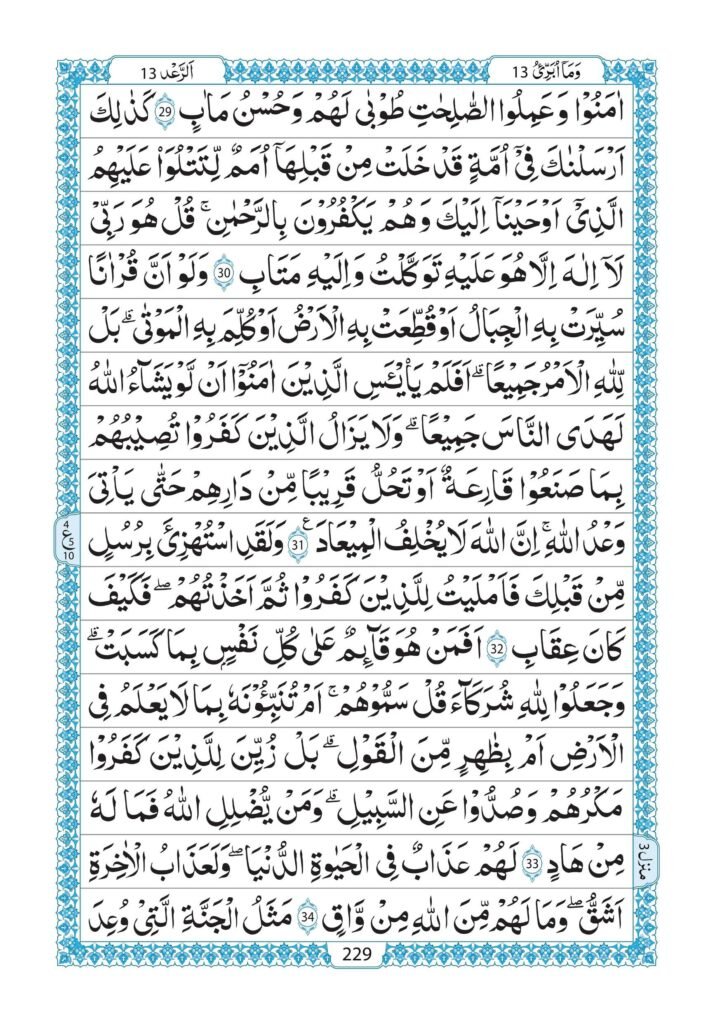 وَمَاۤ اُبَرِّئُ 13
اَلرَّعْد 13
اٰمَنُوْا وَعَمِلُوا الصّٰلِحٰتِ طُوْبٰى لَهُمْ وَحُسْنُ مَاٰبٍ 29 كَذٰلِكَ
اَرْسَلْنٰكَ فِىْۤ اُمَّةٍ قَدْ خَلَتْ مِنْ قَبْلِهَاۤ اُمَمٌ لِّتَتْلُوَا۟ عَلَيْهِمُ
الَّذِىْۤ اَوْحَيْنَاۤ اِلَيْكَ وَهُمْ يَكْفُرُوْنَ بِالرَّحْمٰنِ ۚ قُلْ هُوَ رَبِّىْ
لَاۤ اِلٰهَ اِلَّا هُوَ عَلَيْهِ تَوَكَّلْتُ وَاِلَيْهِ مَتَابِ 30 وَلَوْ اَنَّ قُرْاٰنًا
سُيِّرَتْ بِهِ الْجِبَالُ اَوْ قُطِّعَتْ بِهِ الْاَرْضُ اَوْ كُلِّمَ بِهِ الْمَوْتٰى ؕ بَلْ
لِّلّٰهِ الْاَمْرُ جَمِيْعًا ؕ اَفَلَمْ يَا۟يْـَٔسِ الَّذِيْنَ اٰمَنُوْۤا اَنْ لَّوْ يَشَآءُ اللّٰهُ
لَهَدَى النَّاسَ جَمِيْعًا ؕ وَلَا يَزَالُ الَّذِيْنَ كَفَرُوْا تُصِيْبُهُمْ
بِمَا صَنَعُوْا قَارِعَةٌ اَوْ تَحُلُّ قَرِيْبًا مِّنْ دَارِهِمْ حَتّٰى يَاْتِىَ
وَعْدُ اللّٰهِ ؕ اِنَّ اللّٰهَ لَا يُخْلِفُ الْمِيْعَادَ ࣖ 31 وَلَقَدِ اسْتُهْزِئَ بِرُسُلٍ
4 ع 5 10
مِّنْ قَبْلِكَ فَاَمْلَيْتُ لِلَّذِيْنَ كَفَرُوْا ثُمَّ اَخَذْتُهُمْ ۖ فَكَيْفَ
كَانَ عِقَابِ 32 اَفَمَنْ هُوَ قَآٮِٕمٌ عَلٰى كُلِّ نَفْسٍۭ بِمَا كَسَبَتْ ؕ
وَجَعَلُوْا لِلّٰهِ شُرَكَآءَ قُلْ سَمُّوْهُمْ ؕ اَمْ تُنَبِّـُٔوْنَهٗ بِمَا لَا يَعْلَمُ فِى
الْاَرْضِ اَمْ بِظَاهِرٍ مِّنَ الْقَوْلِ ؕ بَلْ زُيِّنَ لِلَّذِيْنَ كَفَرُوْا
مَكْرُهُمْ وَصُدُّوْا عَنِ السَّبِيْلِ ؕ وَمَنْ يُّضْلِلِ اللّٰهُ فَمَا لَهٗ
مِنْ هَادٍ 33 لَهُمْ عَذَابٌ فِى الْحَيٰوةِ الدُّنْيَا ۖ وَلَعَذَابُ الْاٰخِرَةِ
منزل 3
اَشَقُّ ۖ وَمَا لَهُمْ مِّنَ اللّٰهِ مِنْ وَّاقٍ 34 مَثَلُ الْجَنَّةِ الَّتِىْ وُعِدَ
229